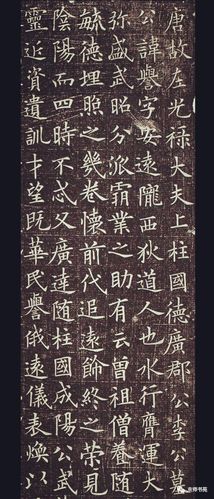 唐故左光禄大夫上柱國德廣郡公李公墓
公諱譽字安遠隴西狄道人也水行膺運大
弥盛武昭分派霸業之助有云曾祖僧養随
毓德埋照之幾卷懷前代追遠飾終之榮見
陰陽而四時不忒父廣達随柱國成陽公武
靈近資遺訓才望既華民譽俄遠儀表煥以